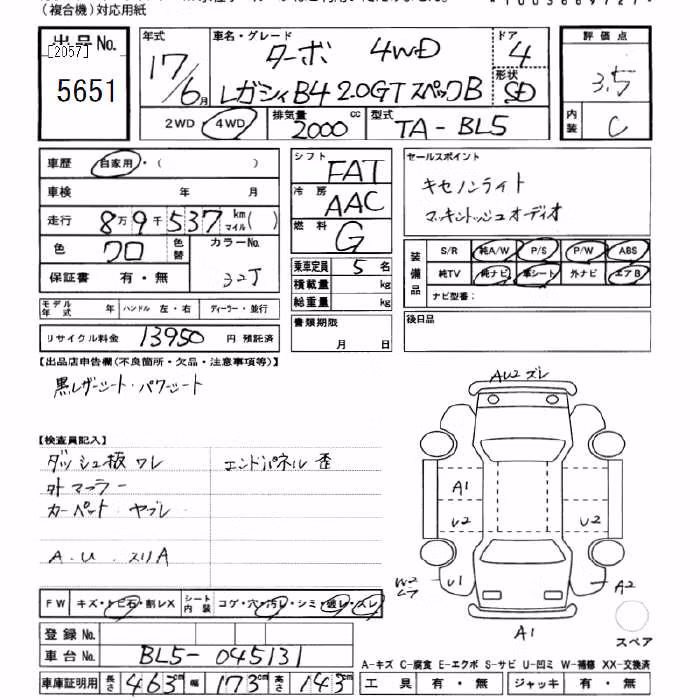 (複合機)対応用紙
出品No.
[2057]
5651
年式
17/6月
車名・グレード
ターボ 4WD
レガシィB4 2.0GTスペックB
ドア
4
形状
SD
評価点
3.5
内装
C
2WD・4WD
排気量
2000cc
型式
TA-BL5
車歴 自家用・( )
車検 年 月
走行 8万9千537km マイル( )
色 クロ 色替
カラーNo.
32J
保証書 有・無
シフト FAT
冷房 AAC
燃料 G
乗車定員 5名
積載量 kg
総重量 kg
セールスポイント
キセノンライト
マッキントッシュオーディオ
装備品
S/R 純A/W P/S P/W ABS
純TV 純ナビ 革シート 外ナビ エアB
ナビ型番:
モデル年式 年 ハンドル 左・右 ディーラー・並行
リサイクル料金 13950円 預託済
書類期限
月 日
後日品
【出品店申告欄(不良箇所・欠品・注意事項等)】
黒レザーシート・パワーシート
【検査員記入】
ダッシュ板ワレ エンドパネル歪
外マフラー
カーペット ヤブレ
A.U.スリA
AU2 ズレ
A1
U2 U2
W2
U1 A2
A1
スペア
FW キズ・トビ石・割レX シート内装 コゲ・穴・汚レ・シミ・破レ・スレ
登録No.
車台No. BL5-045131
A-キズ C-腐食 E-エクボ S-サビ U-凹ミ W-補修 XX-交換済
車庫証明用 長さ 463cm 幅 173cm 高さ 143cm
工具 有・無 ジャッキ 有・無